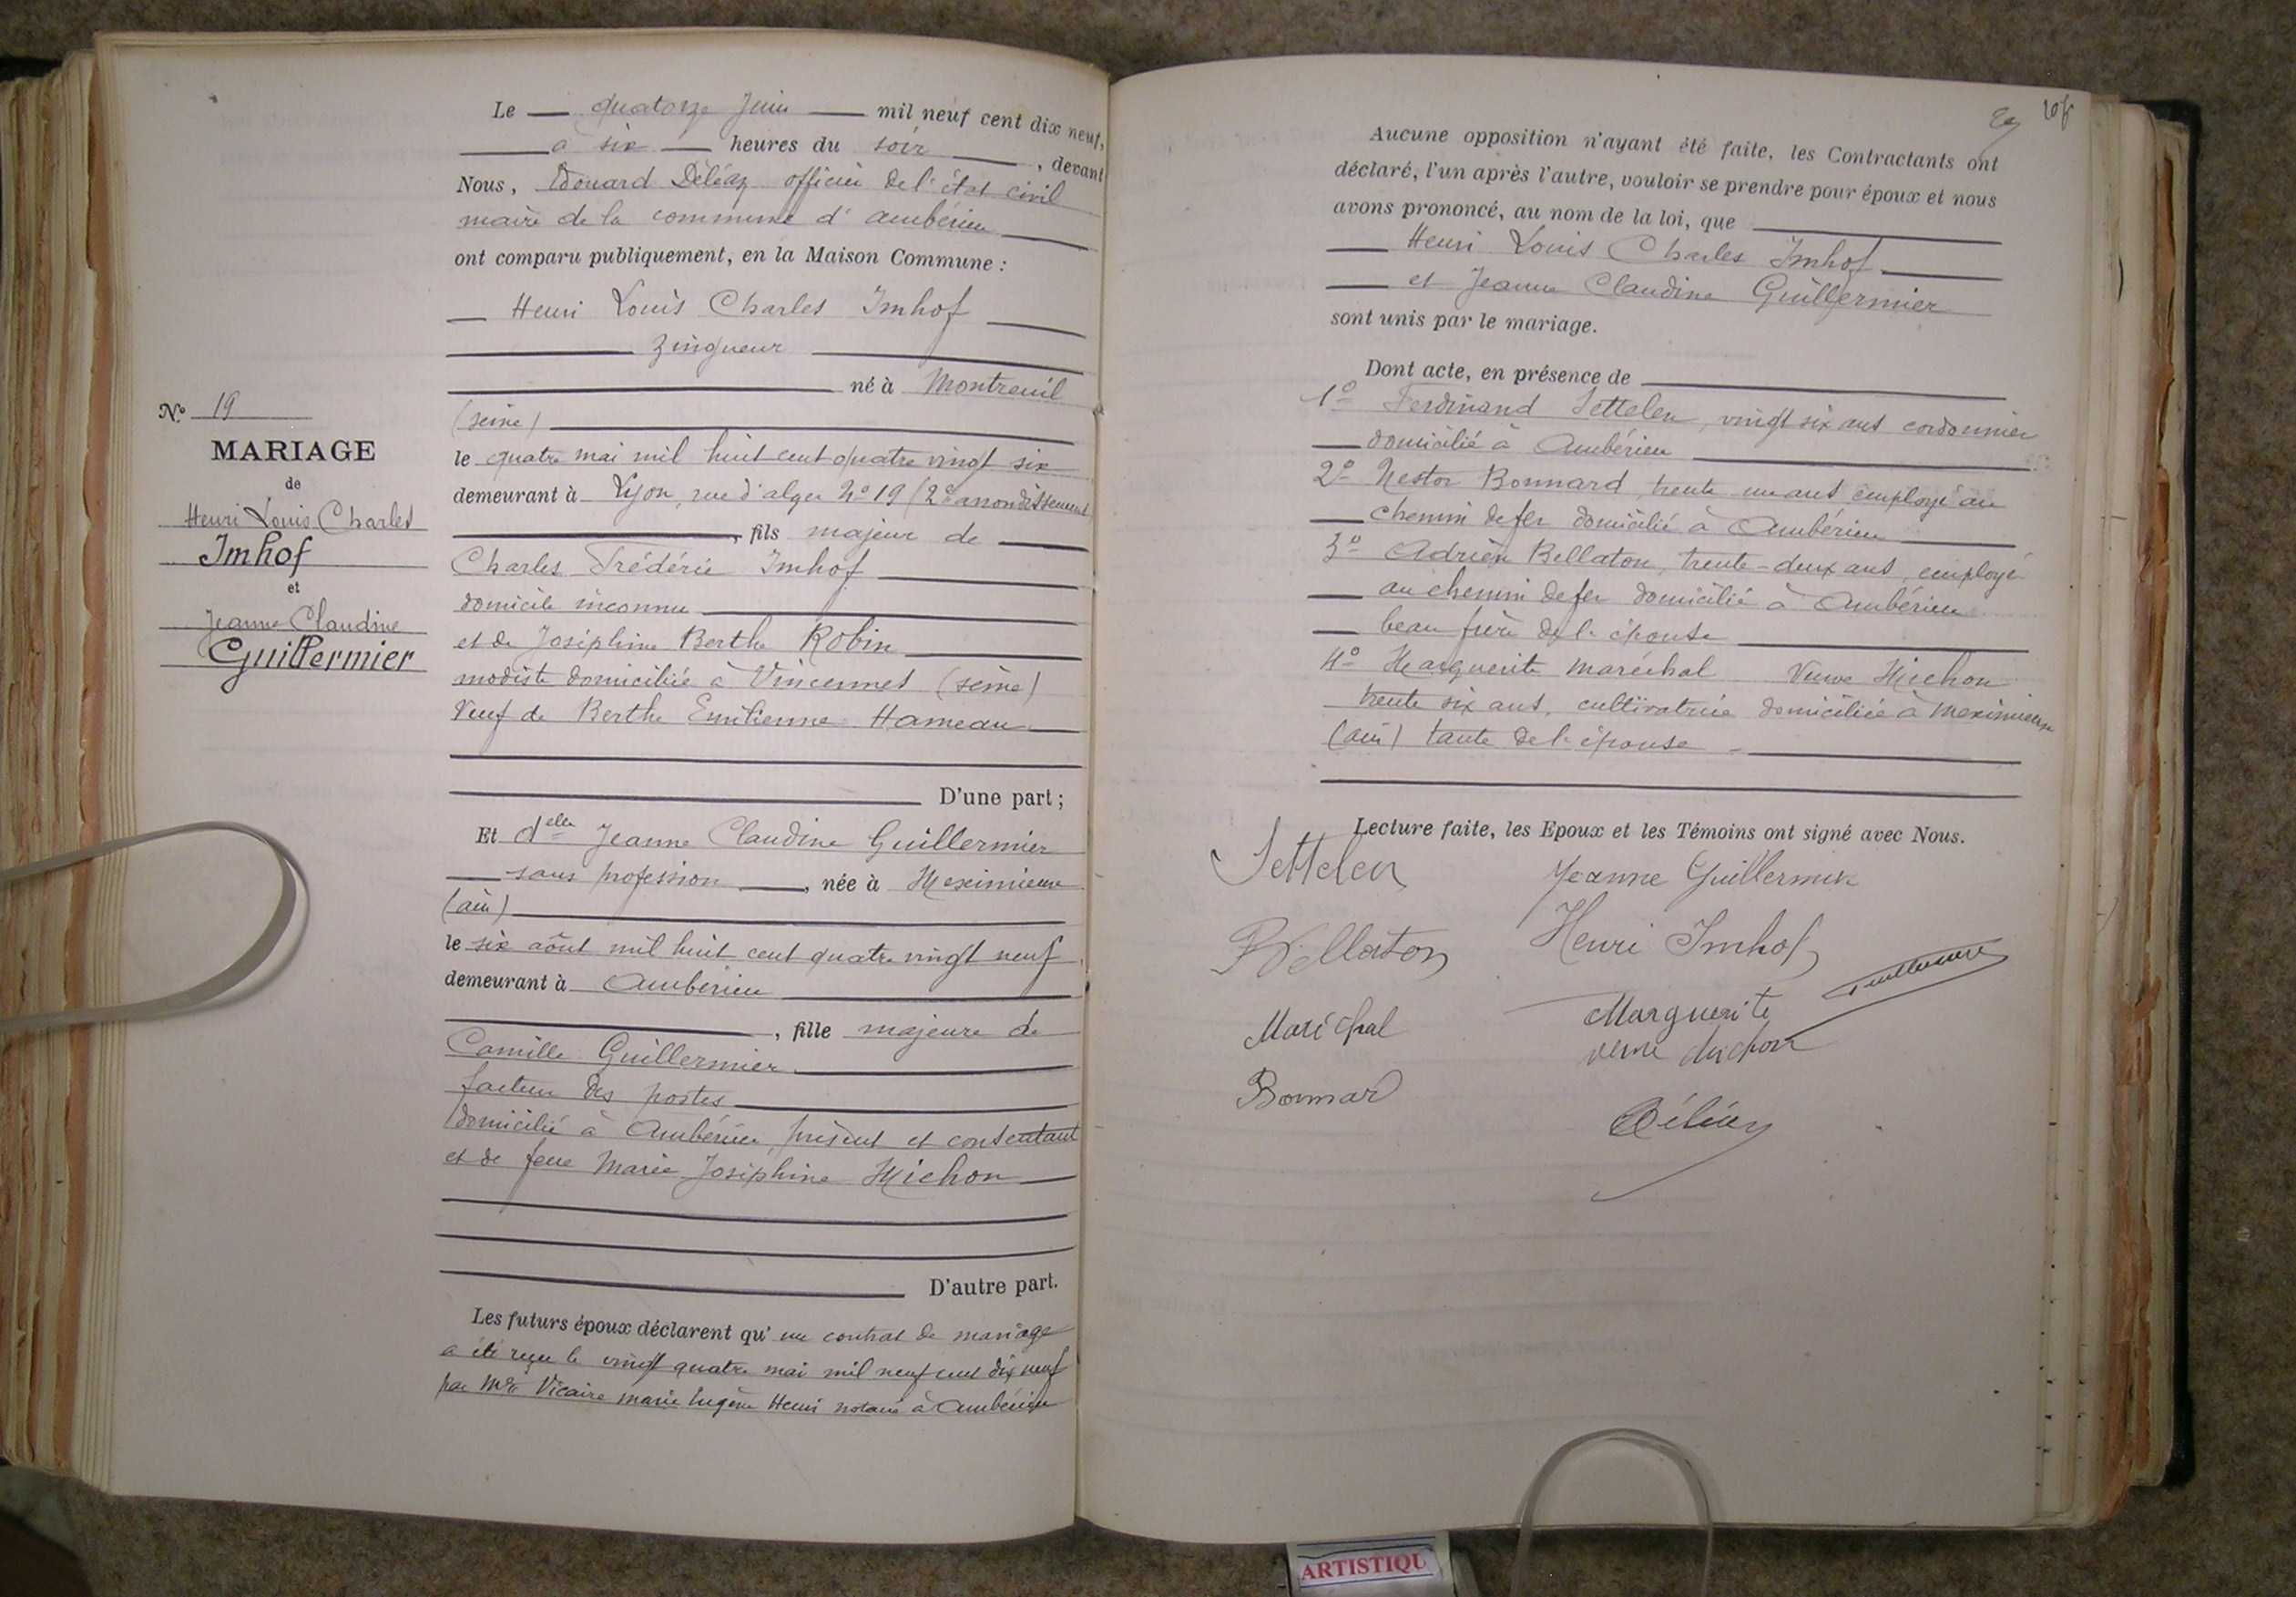 Le quatorze Juin mil neuf cent dix neuf,
à six heures du soir, devant
Nous, Edouard Déléaz officier de l'état civil
maire de la commune d'ambérieu
ont comparu publiquement, en la Maison Commune :
Henri Louis Charles Imhof
zingueur
né à Montreuil
(seine)
le quatre mai mil huit cent quatre vingt six
demeurant à Lyon, rue d'alger No 19 (2e arrondissement
, fils majeur de
Charles Frédéric Imhof
domicile inconnu
et de Joséphine Berthe Robin
modiste domiciliée à Vincennes (seine)
Veuf de Berthe Emilienne Hameau
D'une part ;
Et delle Jeanne Claudine Guillermier
sans profession, née à Meximieux
(ain)
le six août mil huit cent quatre vingt neuf
demeurant à Ambérieu
, fille majeure de
Camille Guillermier
facteur des postes
domicilié à Ambérieu, présent et consentant
et de feue Marie Joséphine Michon
D'autre part.
Les futurs époux déclarent qu'un contrat de mariage
a été reçu le vingt quatre mai mil neuf cent dix neuf
par Me Vicaire marie Eugène Henri notaire à Ambérieu
No 19
MARIAGE
de
Henri Louis Charles
Imhof
et
Jeanne Claudine
Guillermier
Aucune opposition n'ayant été faite, les Contractants ont
déclaré, l'un après l'autre, vouloir se prendre pour époux et nous
avons prononcé, au nom de la loi, que
Henri Louis Charles Imhof
et Jeanne Claudine Guillermier
sont unis par le mariage.
Dont acte, en présence de
1o Ferdinand Settelen, vingt six ans cordonnier
domicilié à Ambérieu
2o Nestor Bonnard, trente un ans employé au
chemin de fer domicilié à Ambérieu
3o Adrien Bellaton, trente-deux ans, employé
au chemin de fer domicilié à Ambérieu
beau frère de l'épouse
4o Marguerite Maréchal Veuve Michon
trente six ans, cultivatrice domiciliée à Meximieux
(ain) tante de l'épouse
Lecture faite, les Epoux et les Témoins ont signé avec Nous.
Settelen
Jeanne Guillermier
Bellaton
Henri Imhof
Guillermier
Maréchal
Marguerite
veuve Michon
Bonnard
Déléaz
ARTISTIQU